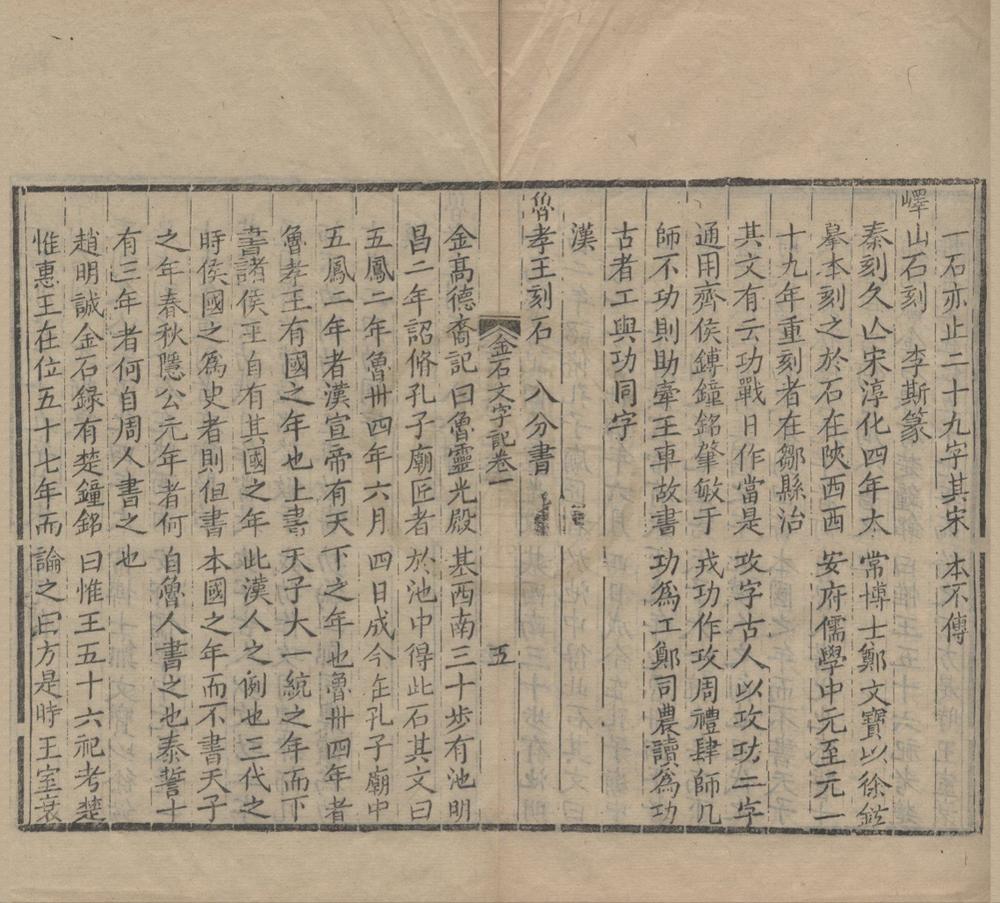 一石亦止二十九字其宋本不傳
嶧山石刻 李斯篆
秦刻久亾宋淳化四年太常博士鄭文寶以徐鉉
摹本刻之於石在陝西西安府儒學中元至元一
十九年重刻者在鄒縣治
其文有云功戰日作當是攻字古人以攻功二字
通用齊侯鎛鐘銘肇敏于戎功作攻周禮肆師凡
師不功則助牽主車故書功爲工鄭司農讀爲功
古者工與功同字
漢
魯孝王刻石 八分書
金石文字記卷一 五
金高德裔記曰魯靈光殿基西南三十步有池明
昌二年詔脩孔子廟匠者於池中得此石其文曰
五鳳二年魯卅四年六月四日成今在孔子廟中
五鳳二年者漢宣帝有天下之年也魯卅四年者
魯孝王有國之年也上書天子大一統之年而下
書諸侯王自有其國之年此漢人之例也三代之
時侯國之爲史者則但書本國之年而不書天子
之年春秋隱公元年者何自魯人書之也泰誓十
有三年者何自周人書之也
趙明誠金石録有楚鐘銘曰惟王五十六祀考楚
惟惠王在位五十七年而論之曰方是時王室衰